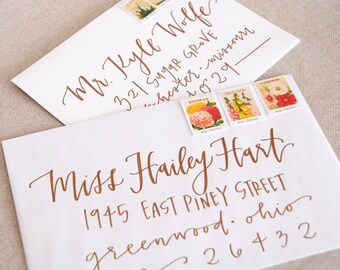 Mr. Kyle Wolfe
321 Sugar Grove
missouri
29
Miss Hailey Hart
1945 EAST PINEY STREET
greenwood. ohio
26432